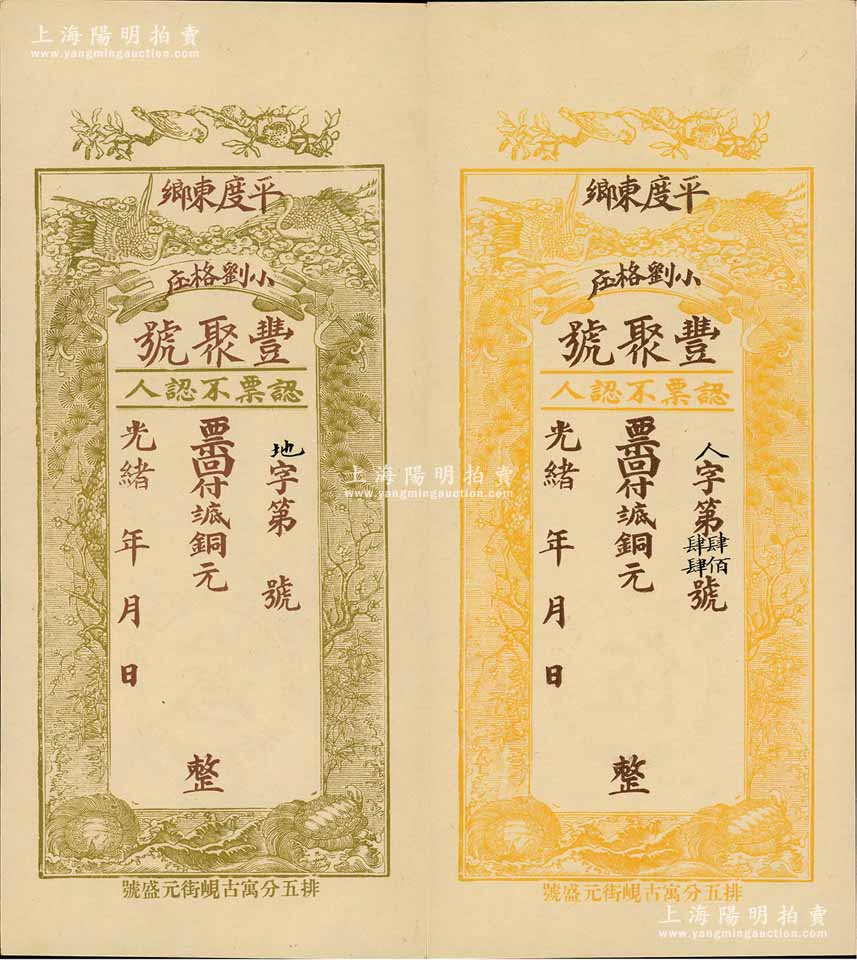 上海陽明拍賣
www.yangmingauction.com
平度東鄉
小劉格庄
豐聚號
認票不認人
地字第 號
票回付㡳銅元 整
光緒 年 月 日
排五分寓古峴街元盛號
平度東鄉
小劉格庄
豐聚號
認票不認人
人字第肆佰肆肆號
票回付㡳銅元 整
光緒 年 月 日
排五分寓古峴街元盛號
上海陽明拍賣
www.yangmingauction.com
上海陽明拍賣
www.yangmingauction.com